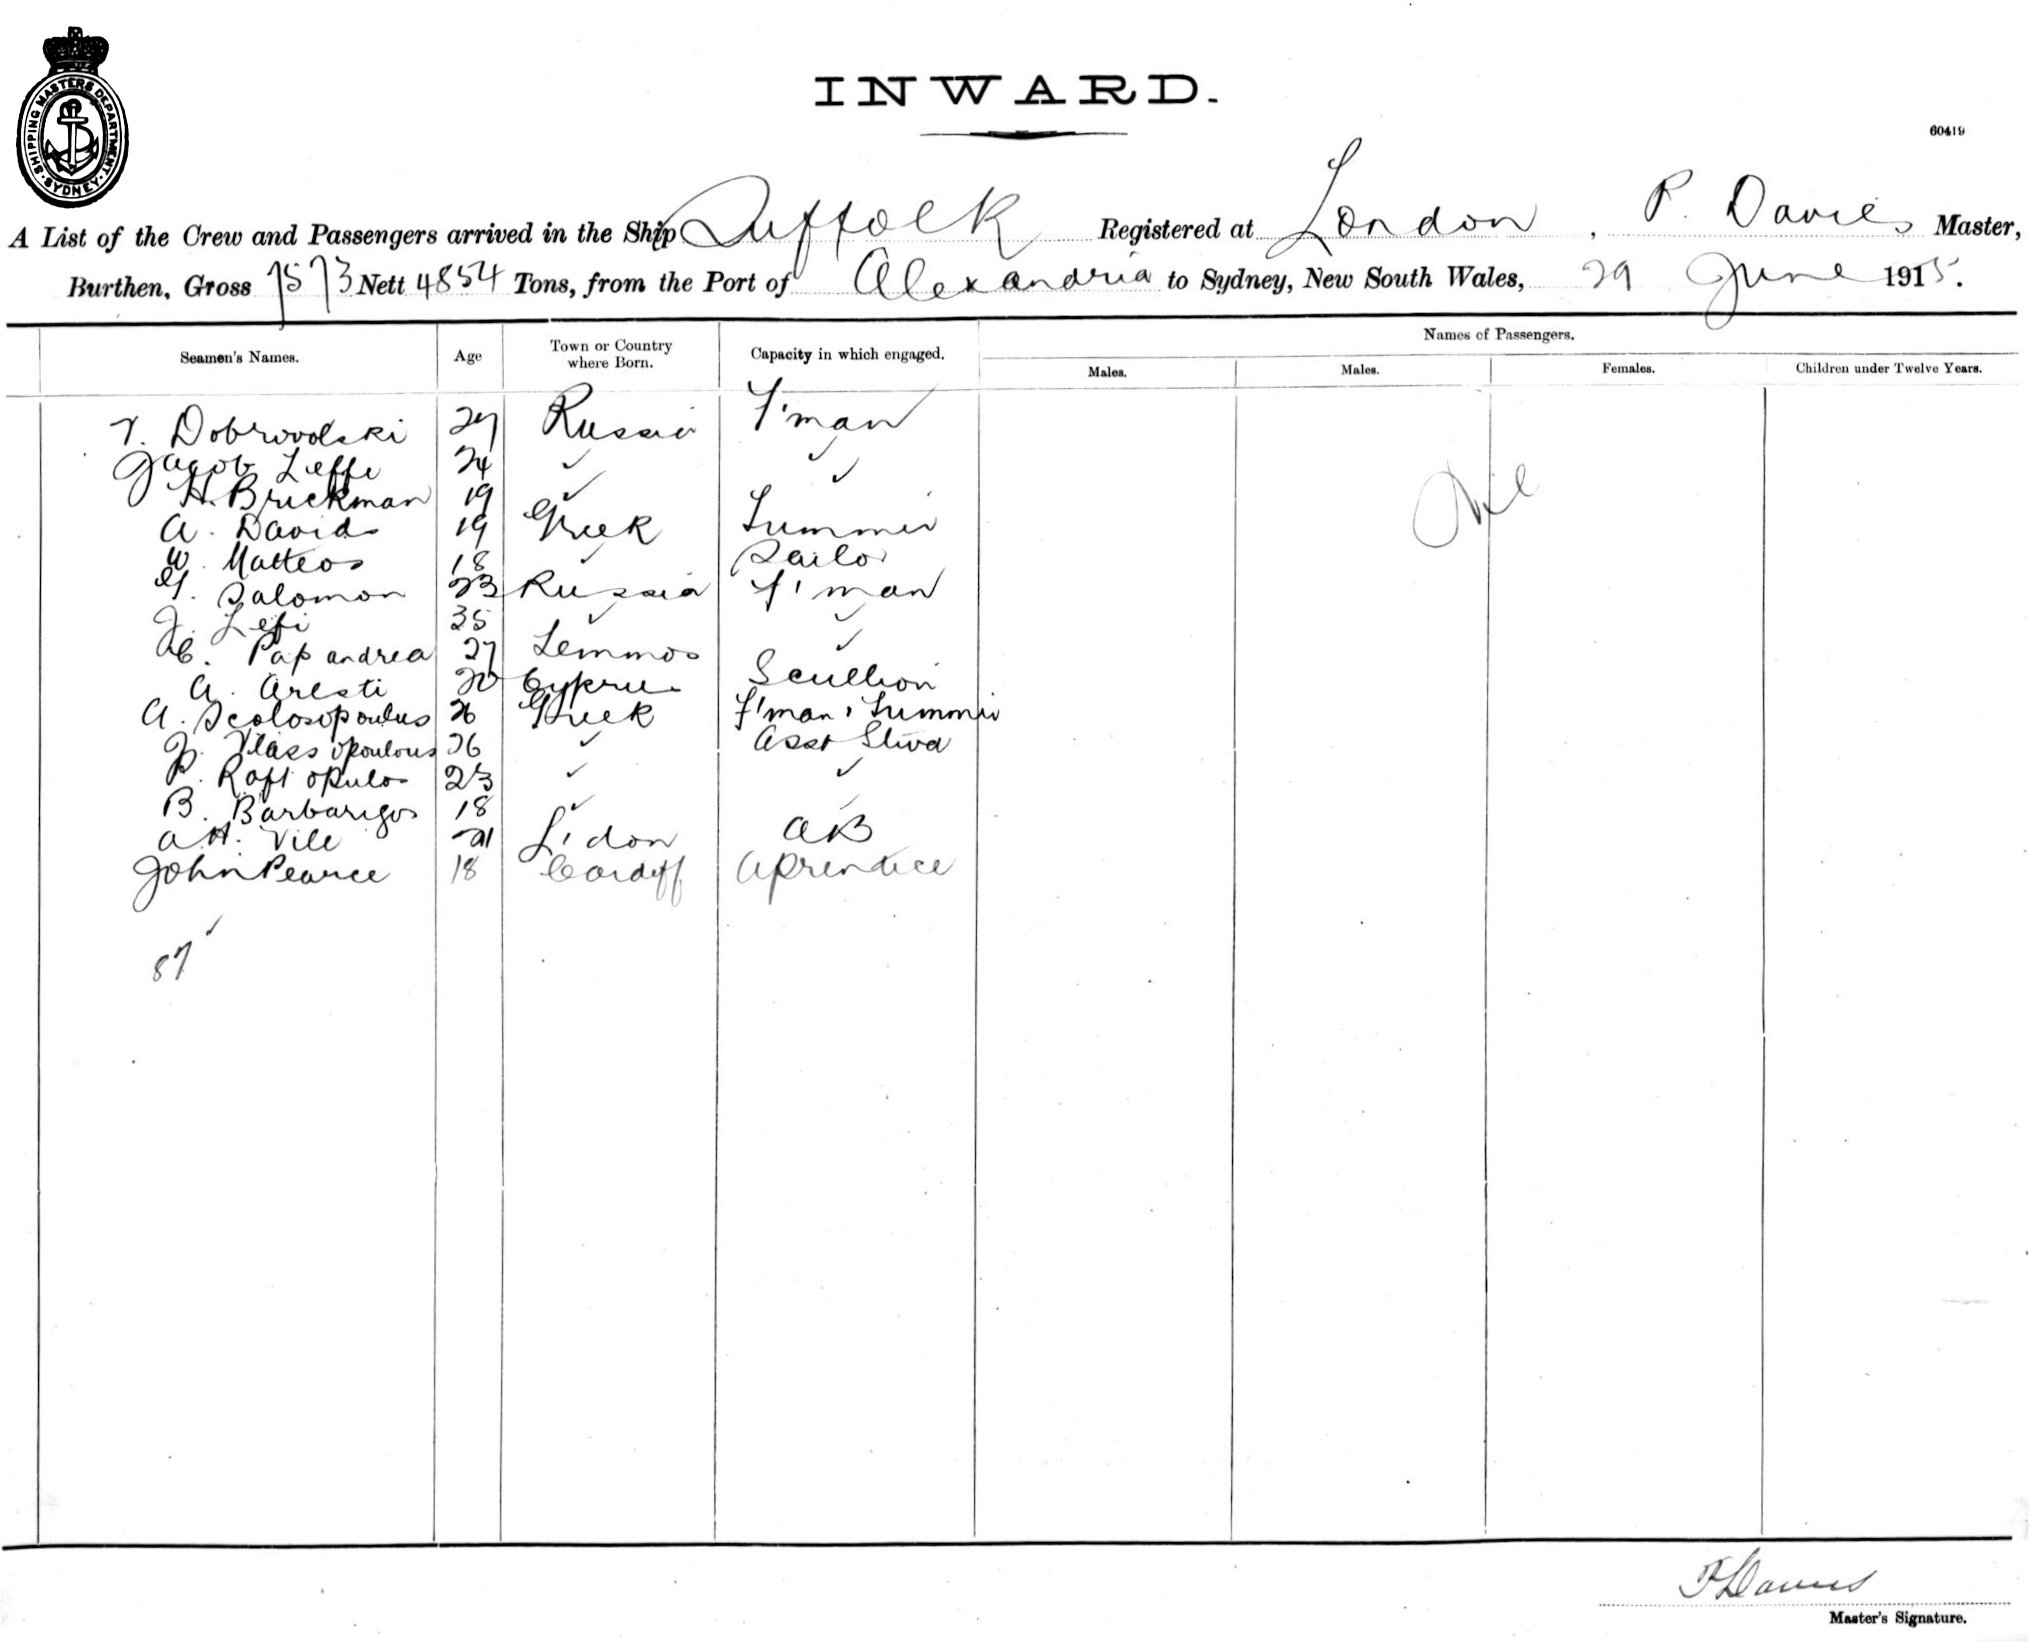 SHIPPING MASTERS DEPARTMENT · SYDNEY ·
INWARD.
60419
A List of the Crew and Passengers arrived in the Ship Suffolk Registered at London, P. Davies Master,
Burthen, Gross 7573 Nett 4854 Tons, from the Port of Alexandria to Sydney, New South Wales, 29 June 1915.
Seamen's Names. Age Town or Country where Born. Capacity in which engaged. Names of Passengers.
Males. Males. Females. Children under Twelve Years.
Dobrovolski 27 Russia F'man
Jacob Leffi 24 ✓ ✓
H. Brickman 19 ✓ ✓
A. Davids 19 Greek Trimmer
W. Matteos 18 ✓ Sailor
Salomon 23 Russia F'man
J. Lefi 35 ✓ ✓
Papandrea 27 Lemmos ✓
A. Aresti 20 Cyprus Scullion
A. Scolosopoulus 26 Greek F'man & Trimmer
Vlassopoulous 26 ✓ Asst Stwd
P. Raftopulos 23 ✓ ✓
B. Barbarigos 18 ✓ ✓
A.H. Vile 21 L'don AB
John Pearce 18 Cardiff Aprentice
Nil
87 ✓
P Davies
Master's Signature.